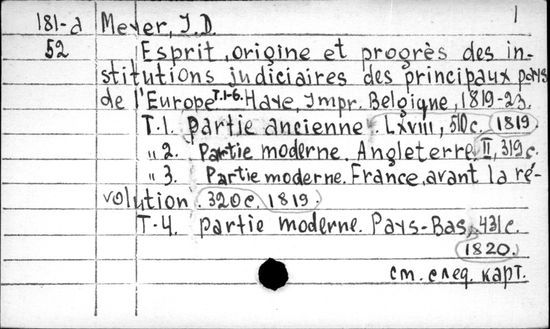 181-д Meyer, J.D. 1
52 Esprit, origine et progrès des in-
stitutions judiciaires des principaux pays
de l'Europe T.1-6. Haye, Impr. Belgique, 1819-23.
T.1. partie ancienne. LXVIII, 510c. 1819.
"2. Partie moderne. Angleterre. II, 319c.
"3. Partie moderne. France, avant la ré-
volution. 320c. 1819.
T.4. partie moderne. Pays-Bas, 431c.
1820.
см. след. карт.